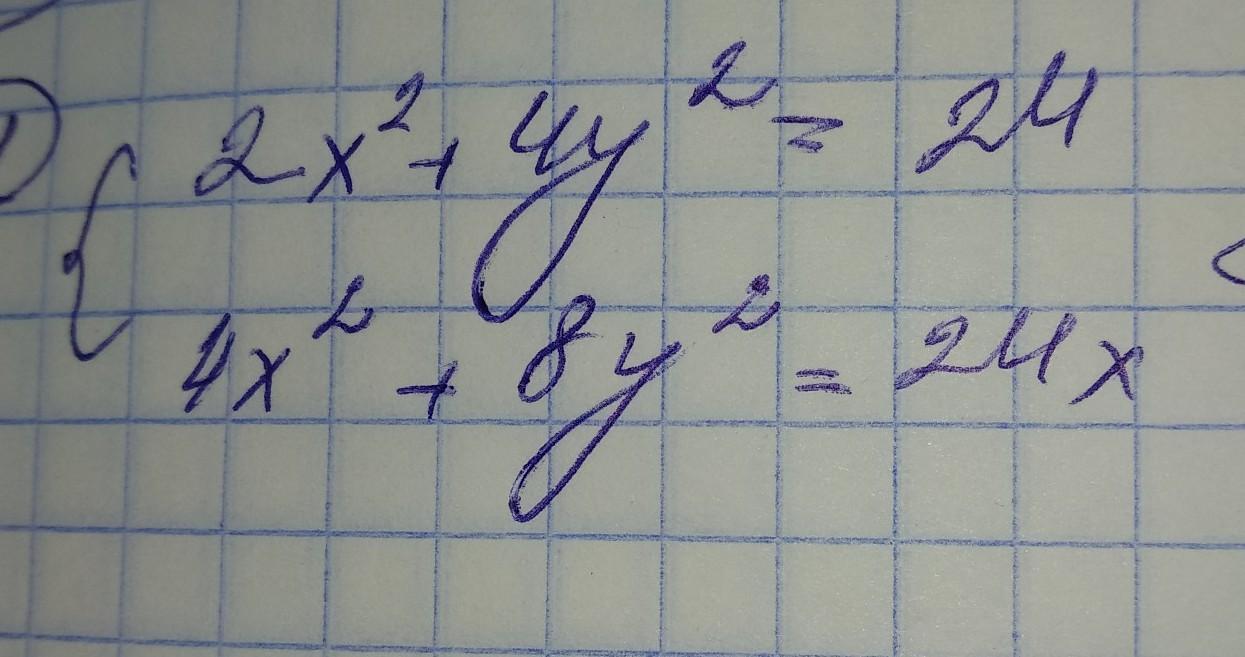 1) { 2x² + 4y² = 24
4x² + 8y² = 24x